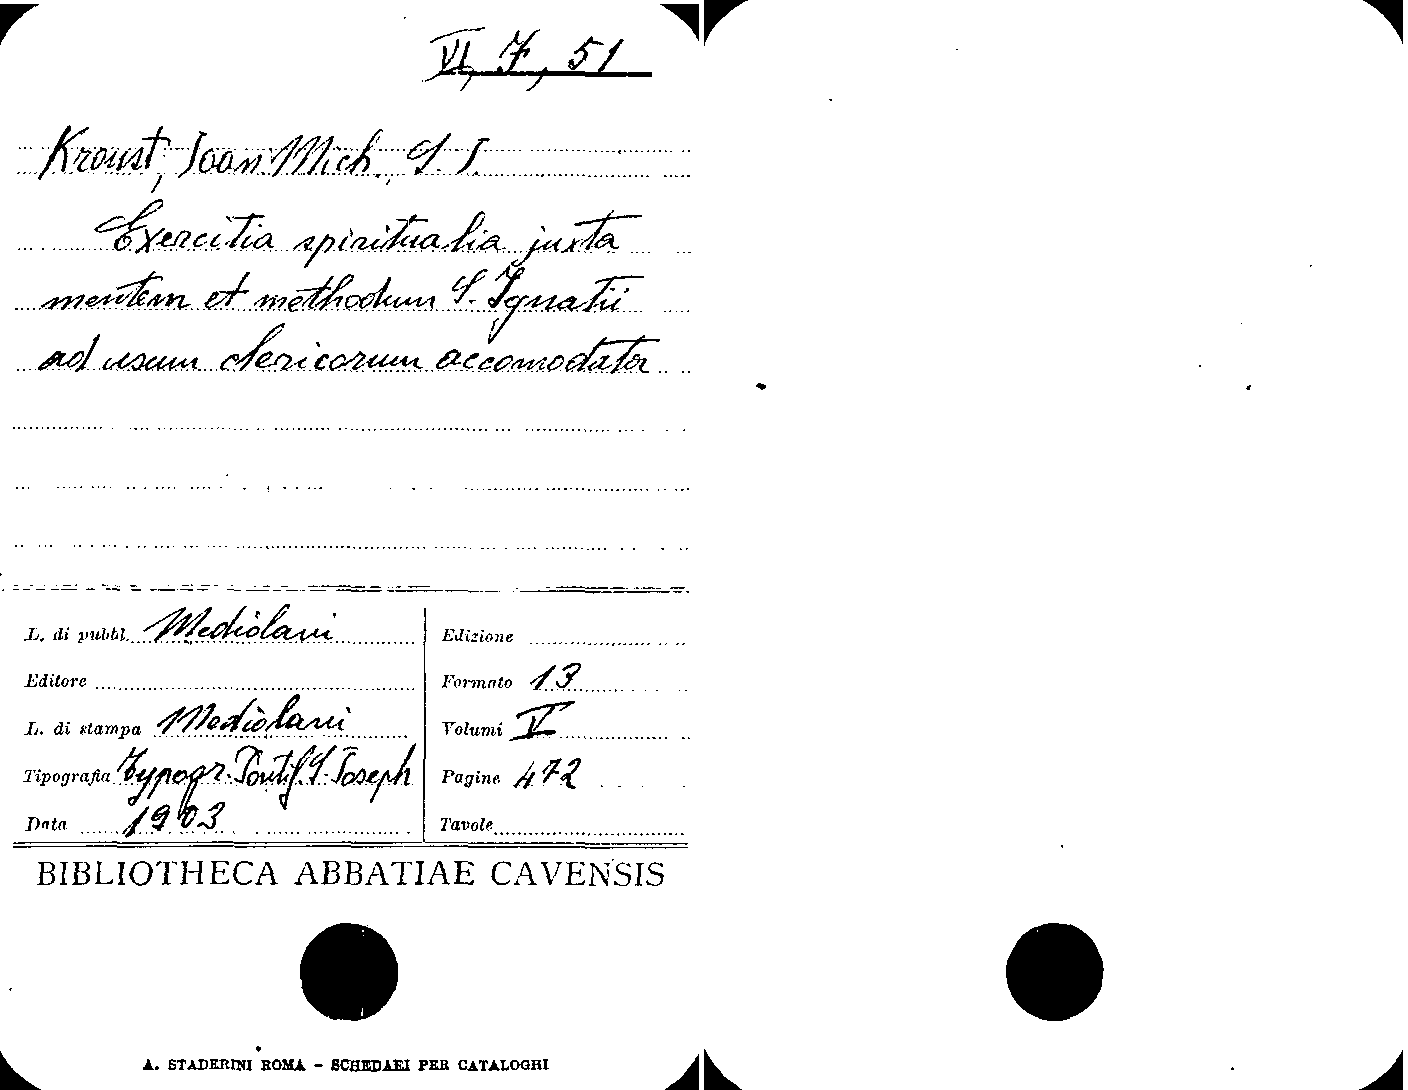 VI, 7, 51
Kroust, Joan Mich., S. J.
Exercitia spiritualia juxta
mentem et methodum S. Ignatii
ad usum clericorum accomodata
L. di pubbl. Mediolani
Editore
L. di stampa Mediolani
Tipografia Typogr. Pontif. S. Joseph
Data 1903
Edizione
Formato 13
Volumi V
Pagine 472
Tavole
BIBLIOTHECA ABBATIAE CAVENSIS
A. STADERINI ROMA - SCHEDARI PER CATALOGHI